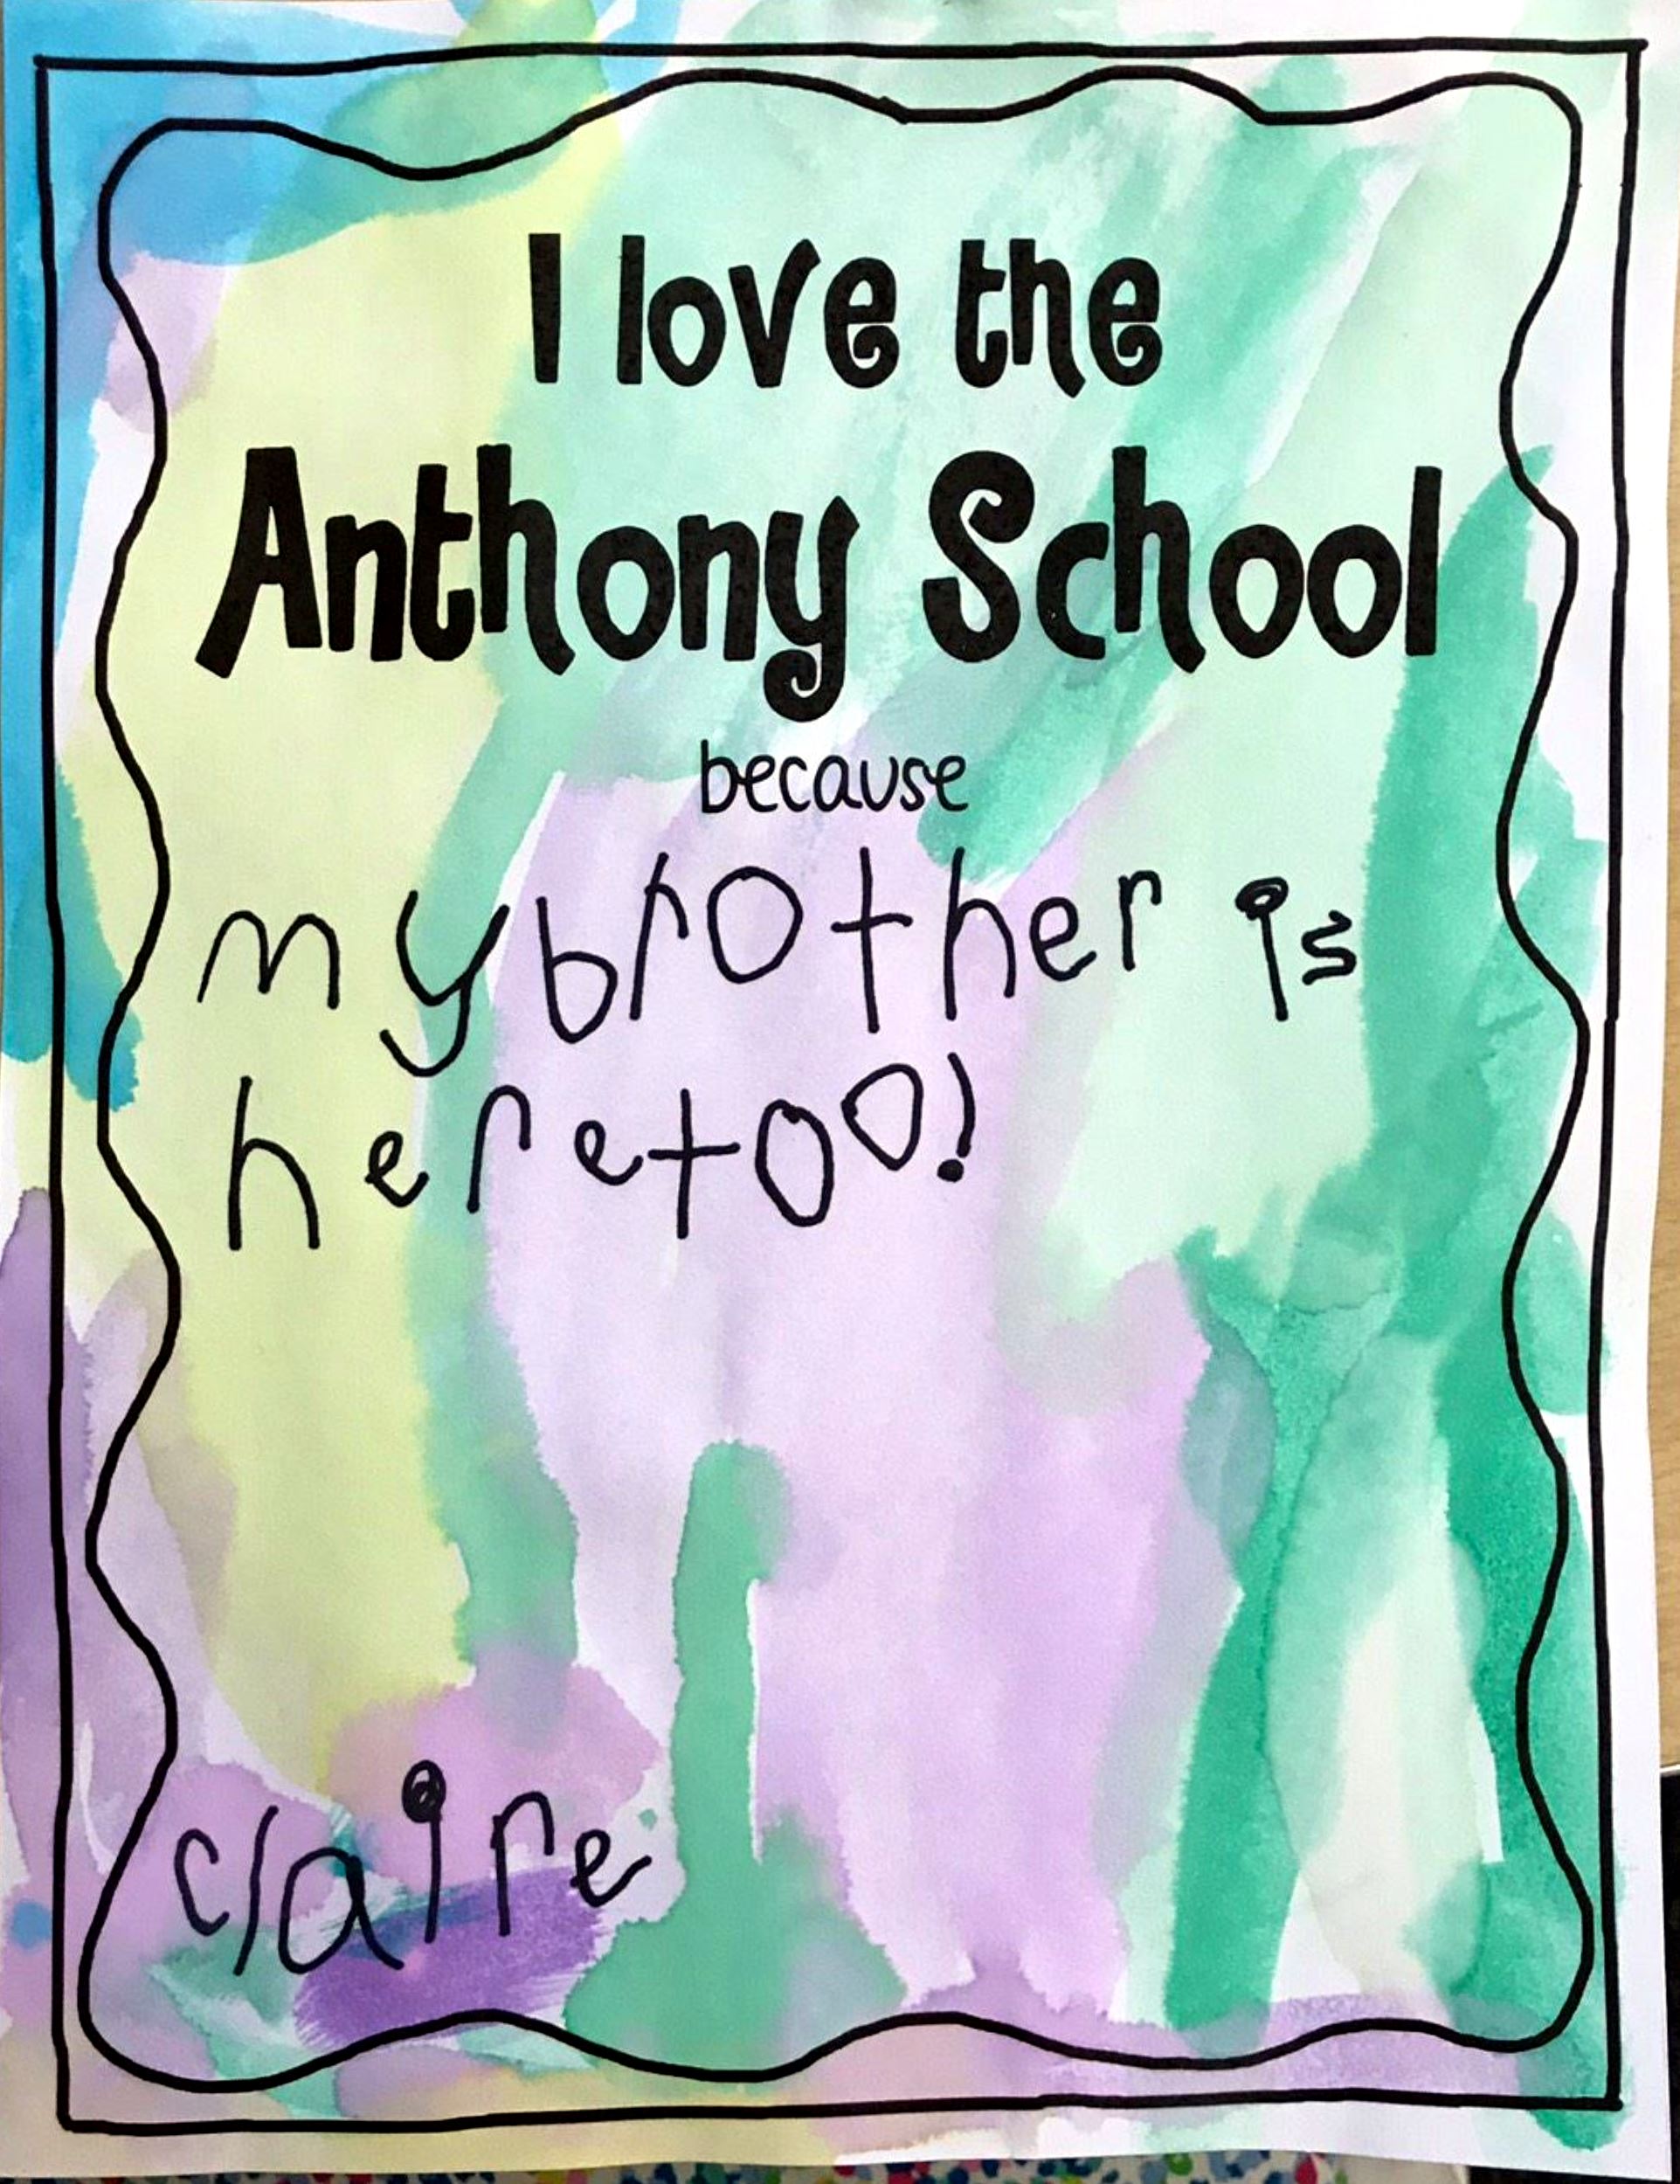 I love the
Anthony School
because
my brother is
here too!
claire